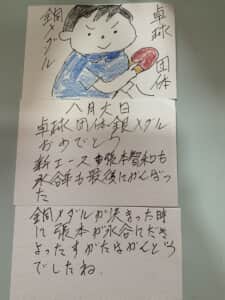 卓球団体
銅メダル
八月六日
卓球団体銀メダル
おめでとう
新エース張本智和も
水谷隼も最後にがんばっ
た
銅メダルが決まった時
に張本が水谷にだき
よったすがたはかんどう
でしたね